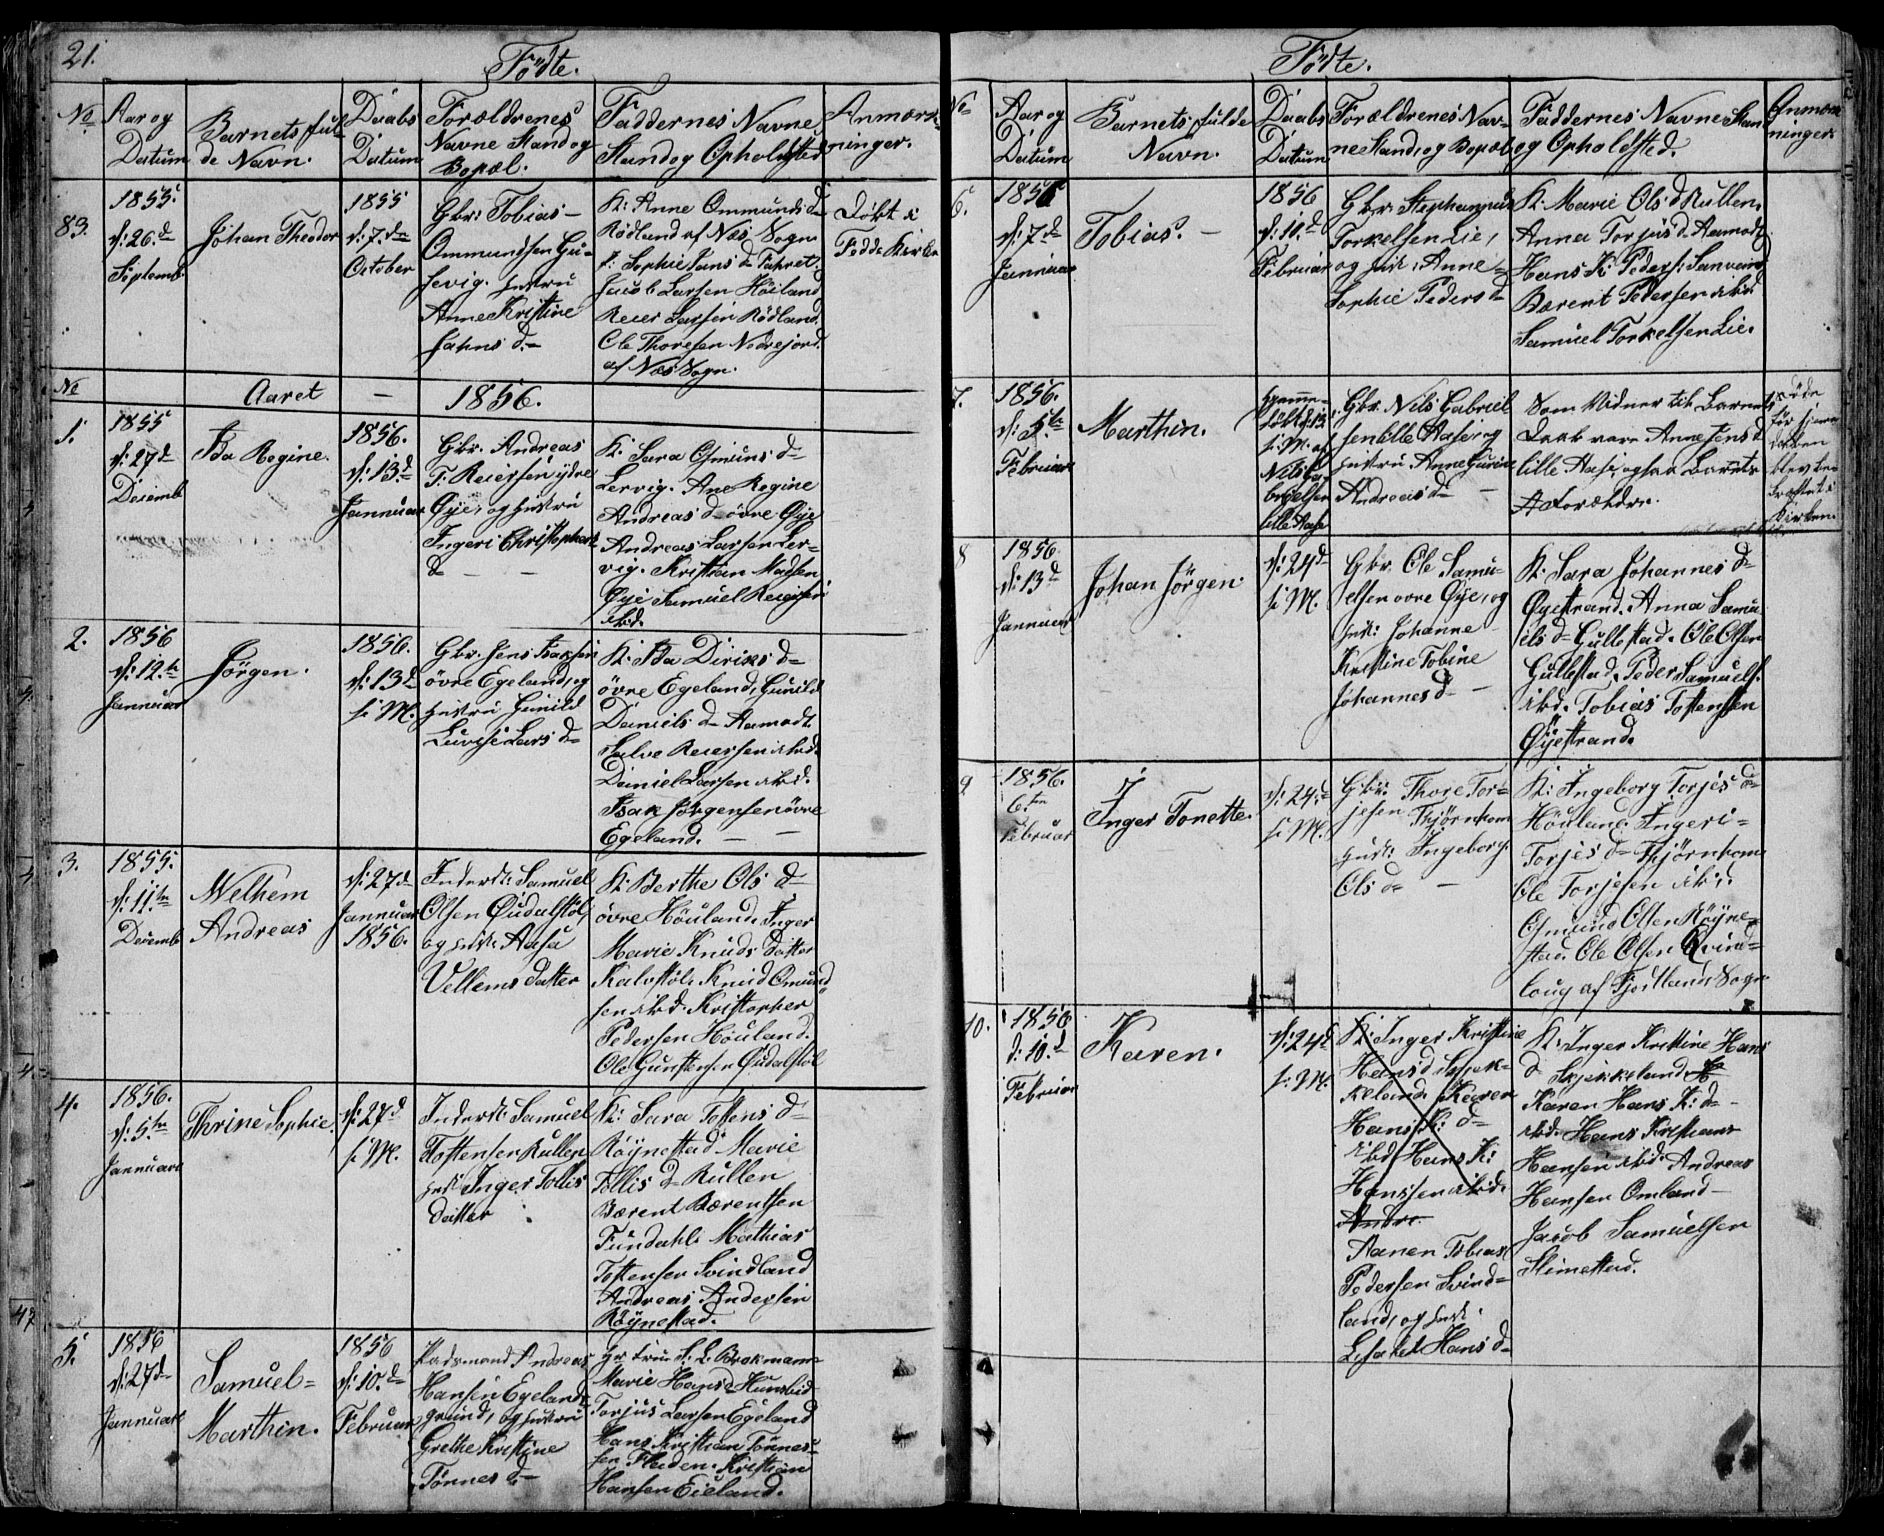 21.
Födte.
No
Aar og
Datum
Barnets ful-
de Navn.
Daabs
Datum
Forældrenes
Navne Stand og
Bopæl.
Faddernes Navne
Stand og Opholdsted
Anmærk-
ninger.
83.
1855.
d: 26.de
Septemb.
Johan Theodor
1855
d: 7.de
October
Gbr: Tobias
Ommundsen
Hustru
Anne Kristine
Jahns d.
K: Anne Ommunds d
Rödland af Nes Sogn
Jacob Larsen Höiland
Reier Larsen Rödland.
Ole Thoresen Nedrejord.
af Næs Sogn.
Döbt i
Fedde Kirke
No
Aaret - 1856.
1.
1855
d: 27d
Decemb
Ida Regine.
1856.
d: 13.d
Jannuar
Gbr. Andreas
T. Reiersen ydre
Öye, og Hustru
Ingeri Christophers
d
K: Sara Osmuns d
Lervig. Ane Regine
Andreas d övre Öye
Andreas Larsen Ler-
vig. Kristian Madsen
Öye Samuel Reiersen
ibd.
2.
1856
d: 12.te
Jannuar
Jörgen.
1856.
d: 13d
i M.
Gbr. Jens Isaksen
övre Egeland, og
Hustru Gunild
Lovise Lars d
K: Ida Dirixs d
övre Egeland, Gunild
Daniels d Aamodt
Salve Reiersen ibd.
Daniel Larsen ibd.
Isak Jörgensen övre
Egeland.
3.
1855.
d: 11.te
Decemb
Welhem
Andreas
d: 27d
Jannuar
1856.
Inderst: Samuel
Olsen Öüdalstöl,
og Hust: Aasa
Vellems datter
K: Berthe Ols d
övre Höuland. Inger
Marie Knuds datter
Kalvstöl. Knud Omund
sen ibd. Kristopher
Pedersen Höuland.
Ole Gunstensen Öüdalstöl
4.
1856.
d: 5.te
Jannuar
Thrine Sophie.
d: 27d
i M.
Inderst: Samuel
Tostensen Rullen
Hust Inger Tollis
datter
K: Sara Tostens d
Röynestad Marie
Tollis d Rullen
Bærent Bærentsen
Mathias
Tostensen Svindland
Andreas Andersen
Röynestad.
5.
1856
d: 27d
Jannuar
Samuel
Marthin.
1856
d: 10.de
Februar
Andreas
Hansen Egelands
grund, og Hustru
Grethe Kristine
Tönnes d
Brekmann
Marie Hans d
Torjus Larsen Egeland
Hans Kristian Tönnes-
sen Fleden. Kristian
Hansen Eieland.
Födte.
No
Aar og
Datum
Barnets fulde
Navn.
Daabs
Datum
Forældrenes Nav-
ne Stand, og Bopæl
Faddernes Navne Stan
og Opholdsted.
Anmærk
ninger
6.
1856
d: 7.de
Jannuar
Tobias.
1856
d: 10.d
Februar
Gbr. Stephanus
Torkelsen Lie,
og Hust: Anne
Sophie Peders d
K: Marie Ols d Rullen,
Anna Torjus d. Aamodt
Hans K: Peders:
Bærent Pedersen ibd.
Samuel Torkelsen Lie.
7.
1856.
d: 5.te
Februar
Marthin.
Hjemme-
af
Nils Ga-
brielsen
lille Aase
Gbr. Nils Gabriel
sen lille Aase, og
Hustru Anne Gurine
Andreas d
Som Vidner til Barnets
Daab vare Anne Jens d
lille Aase, ogsaa Barnets
Forældre.
döde
för hjem
blev be
kraftet i
Kirken.
8
1856.
d: 13d
Jannuar
Johan Jörgen.
d: 24d
i M.
Gbr. Ole Samu-
elsen övre Öye, og
Hust: Johanne
Kristine Tobine
Johannes d
K: Sara Johannes d
Öyestrand. Anna Samu
els d Gullestad. Ole Olsen
Gullestad, Peder Samuels.
ibd. Tobias Tostensen
Öyestrand.
9
1856.
6.te
Februar
Inger Tonette.
d: 24.d
i M.
Gbr: Thore Tor-
jesen Thjörnhom
Hust: Ingeborg
Ols d
K: Ingeborg Torjes d
Höuland. Ingeri
Torjes d Thjörnhom
Ole Torjesen ibid.
Osmund Olsen Röyne-
stad. Ole Olsen Qvind-
loug af Fjotlands Sogn
10.
1856
d: 10.d
Februar
Karen.
d: 24d
i M.
K: Inger Kristine
Hans d Sepjek-
keland. Karen
Hans K: d
ibd Hans K:
Hanssen ibd.
Andre
Aanen Tobias
Pedersen Svind-
land, og Hust:
Lisabet Hans d
K: Inger Kristine Hans
d Skjekkeland
Karen Hans K: d
ibd. Hans Kristians
Hansen ibd. Andreas
Hansen Omland
Jacob Samuelsen
Slimestad.